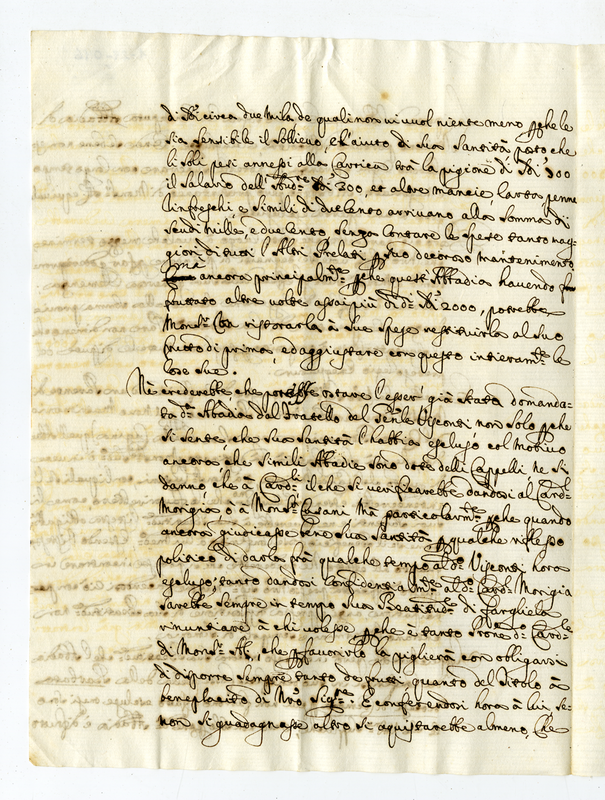 di Sc.di circa due mila de quali non vi vuol niente meno p che le
sia sensibile il sollievo, e l'aiuto di Sua Santità posto che
li soli pesi annessi alla Carrica trà la pigione di Sc.di 300
il Salario dell' Aud.re Sc.di 300, et altre mancie, carta, penne
rinfreschi, e simili di ducento arrivano alla Somma di
Scudi mille, e ducento senza contare le spese tanto mag=
giori di tutti l'Altri Prelati p suo decoroso mantenimento
mà ancora principalm.te p che quest'Abbadia havendo
fruttato altre volte assai più di d.i Sc.di 2000, potrebbe
Mons.r ristorarla à sue spese restituirla al suo
frutto di prima, ed aggiustare con questo intieram.te le
cose sue.
Nè crederebbe che potesse ostare l'esser già stata domanda=
ta d.a Abbadia dal Fratello del Gen.le Visconti non solo p che
si sente, che Sua Santità l'habbia escluso col motivo
ancora che simili Abbadie sono dote delli Cappelli, ne si
danno, che à Card.li il che si verificarebbe dandosi al Card.l
Morigia ò à Mons.r Casani, Mà particolarm.te p che quando
ancora giudicasse bene Sua Santità p qualche riflesso
politico di darla frà qualche tempo al d.o Visconti hora
escluso, tanto dandosi confidentialm.te al d.o Card.l Morigia
sarebbe sempre in tempo Sua Beatitud.e di fargliela
rinuntiare à chi volesse p che è tanto d.o Card.le
di Mons.r che p favorirlo la piglierà con obligarsi
di disporre sempre tanto de frutti quanto del Titolo à
beneplacito di N.ro Sig.re. E conferendosi hora à lui se
non si guadagnasse altro si aquistarebbe almeno, che